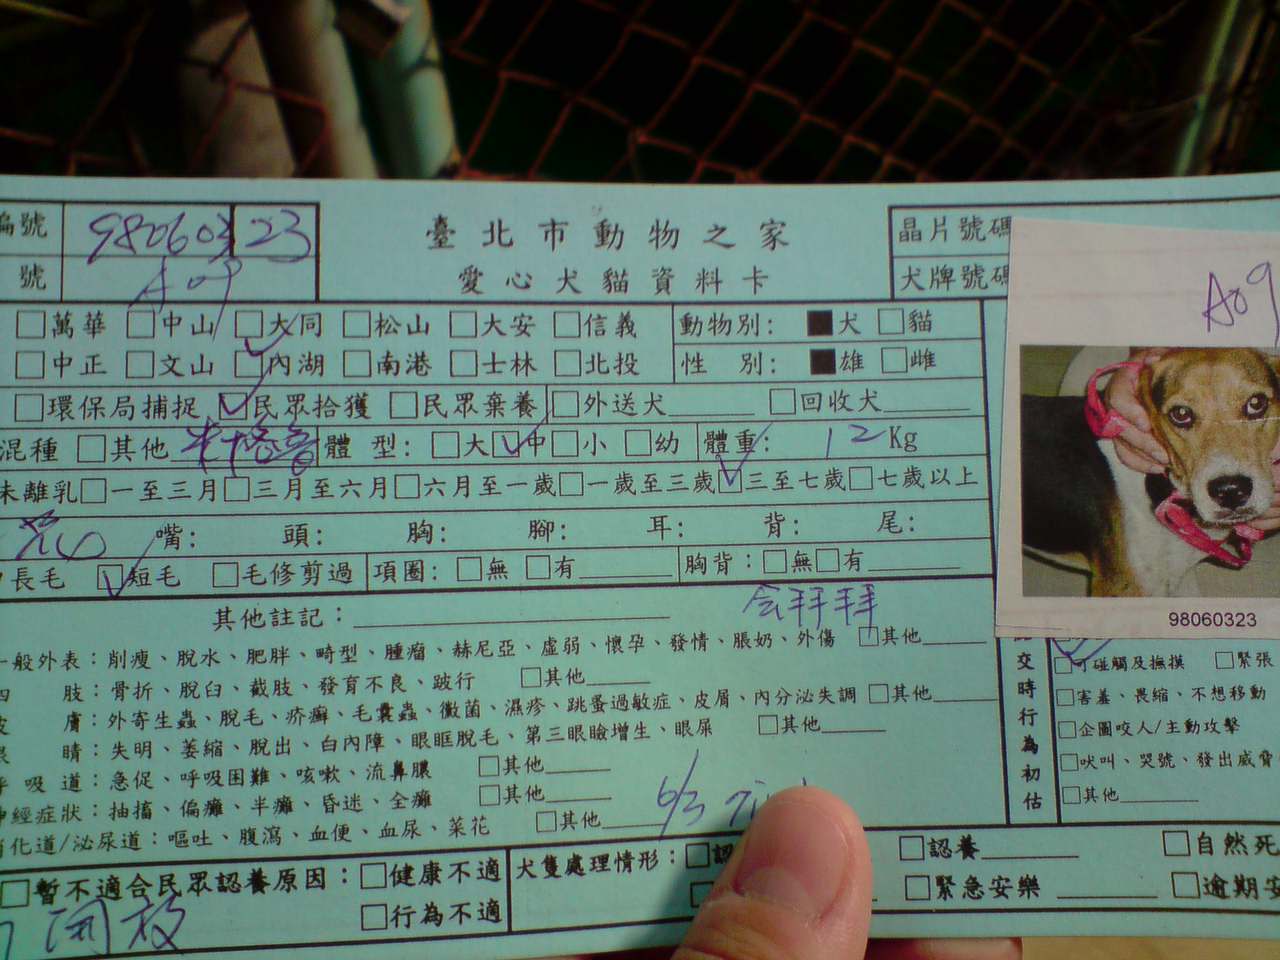 編號 98060323
號 A09
臺北市動物之家
愛心犬貓資料卡
晶片號碼
犬牌號碼
A09
98060323
□萬華 □中山 □大同 □松山 □大安 □信義 動物別: ■犬 □貓
□中正 □文山 □內湖 □南港 □士林 □北投 性 別: ■雄 □雌
□環保局捕捉 □民眾拾獲 □民眾棄養 □外送犬 □回收犬
混種 □其他 米格魯 體 型: □大 □中 □小 □幼 體重: 12 Kg
未離乳 □一至三月 □三月至六月 □六月至一歲 □一歲至三歲 □三至七歲 □七歲以上
嘴: 頭: 胸: 腳: 耳: 背: 尾:
長毛 □短毛 □毛修剪過 項圈: □無 □有 胸背: □無 □有
其他註記: 会拜拜
一般外表:削瘦、脫水、肥胖、畸型、腫瘤、赫尼亞、虛弱、懷孕、發情、脹奶、外傷 □其他
四 肢:骨折、脫臼、截肢、發育不良、跛行 □其他
皮 膚:外寄生蟲、脫毛、疥癬、毛囊蟲、黴菌、濕疹、跳蚤過敏症、皮屑、內分泌失調 □其他
眼 睛:失明、萎縮、脫出、白內障、眼眶脫毛、第三眼瞼增生、眼屎 □其他
呼吸道:急促、呼吸困難、咳嗽、流鼻膿 □其他
神經症狀:抽搐、偏癱、半癱、昏迷、全癱 □其他
消化道/泌尿道:嘔吐、腹瀉、血便、血尿、菜花 □其他
6/3
交時行為初估
□可碰觸及撫摸 □緊張
□害羞、畏縮、不想移動
□企圖咬人/主動攻擊
□吠叫、哭號、發出威脅
□其他
□暫不適合民眾認養原因: □健康不適
□行為不適
開放
犬隻處理情形: □認
□認養 □自然死
□緊急安樂 □逾期安